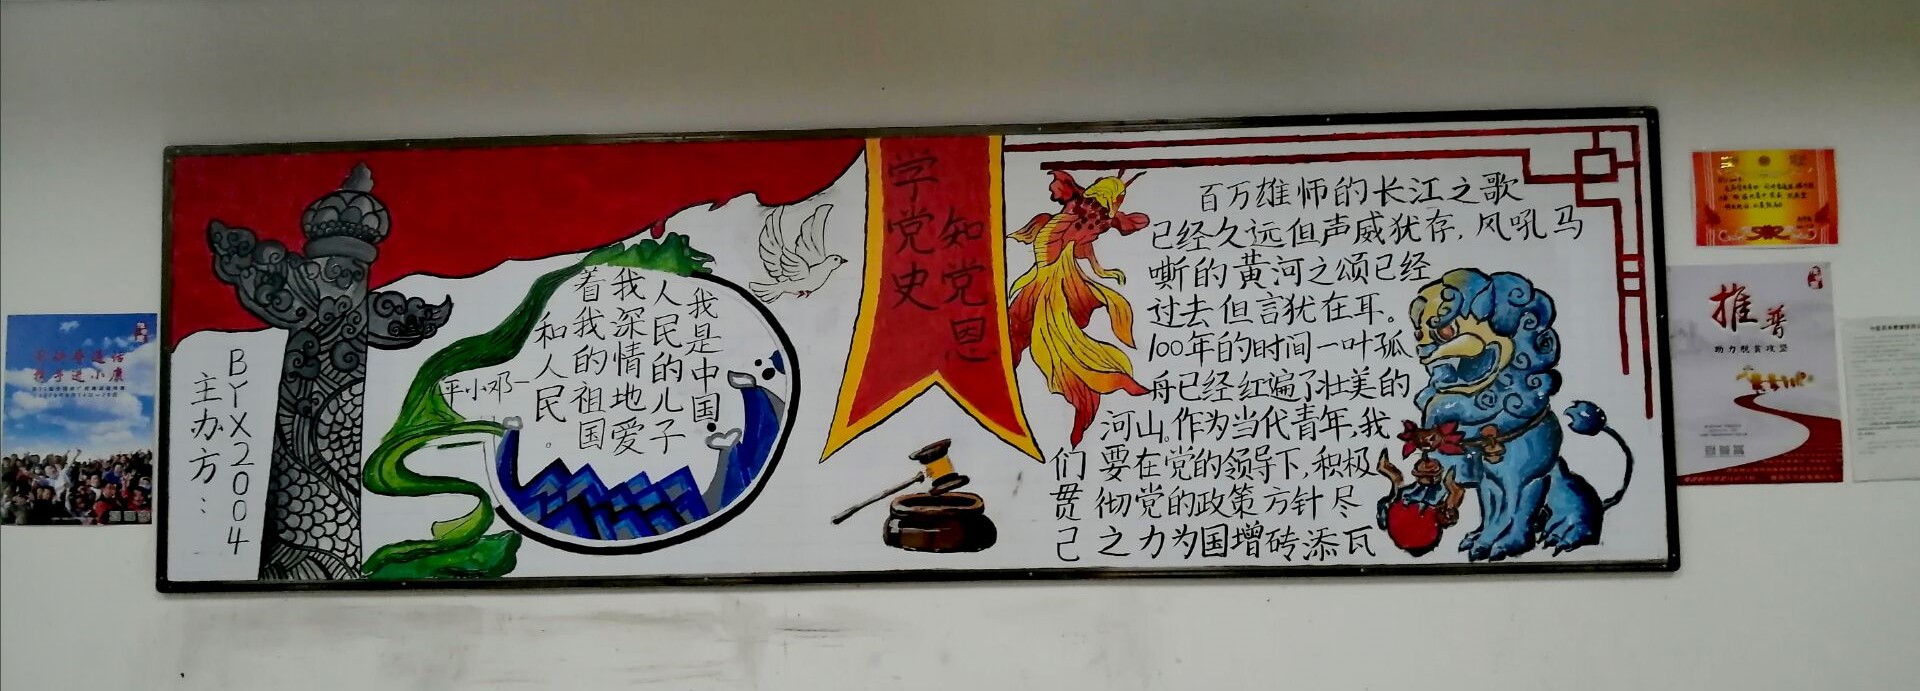 主办方：
BYX2004
我是中国
人民的儿子
我深情地爱
着我的祖国
和人民。
平小邓一
学党史
知党恩
百万雄师的长江之歌
已经久远但声威犹存,风吼马
嘶的黄河之颂已经
过去但言犹在耳。
100年的时间一叶孤
舟已经红遍了壮美的
河山。作为当代青年,我
们要在党的领导下,积极
贯彻党的政策方针尽
己之力为国增砖添瓦
推普
助力脱贫攻坚
携手进小康